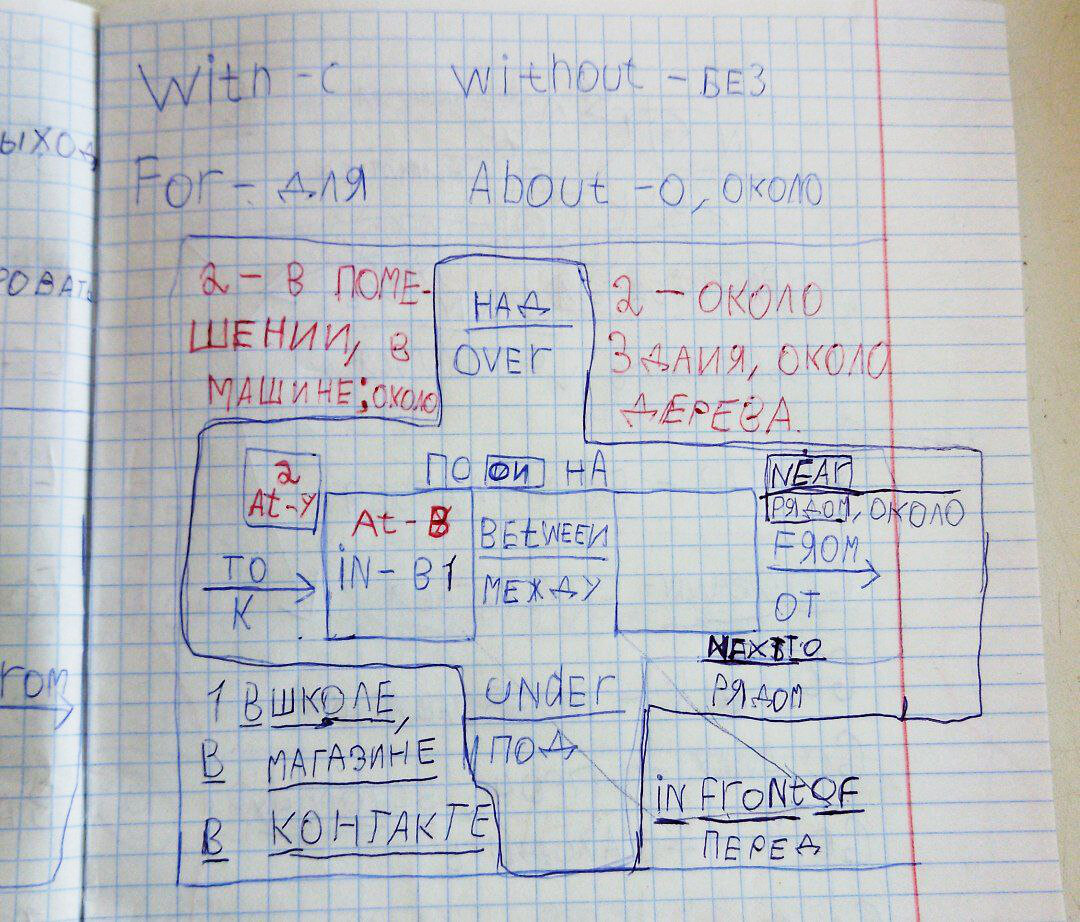 With - с without - БЕЗ
For - для About - о, около
ыход
РОВАТЬ
2 - В ПОМЕ-
ШЕНИИ, В
МАШИНЕ; ОКОЛО
НАД
OVEr
2 - ОКОЛО
ЗДАИЯ, ОКОЛО
ДЕРЕВА.
2
At-У
ПО ОИ НА
NEAr
РЯДОМ, ОКОЛО
At - В
iN - В 1
BEtWEEN
МЕЖДУ
TO
К
FROM
ОТ
NEXt TO
РЯДОМ
1 В ШКОЛЕ,
В МАГАЗИНЕ
В КОНТАКТЕ
UNdEr
ПОД
iN FrONt OF
ПЕРЕД
rOM